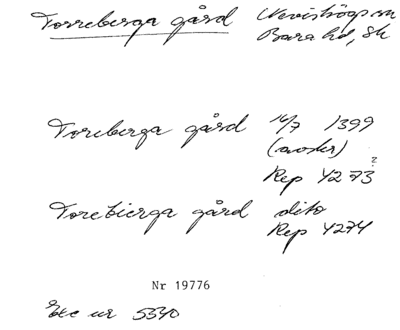 Torreberga gård Nevishögs sn
Bara hd, Sk
Toreberga gård 16/7 1399
(avskr)
?
Rep 4273
Torebierga gård dito
Rep 4274
Nr 19776
nr 5340